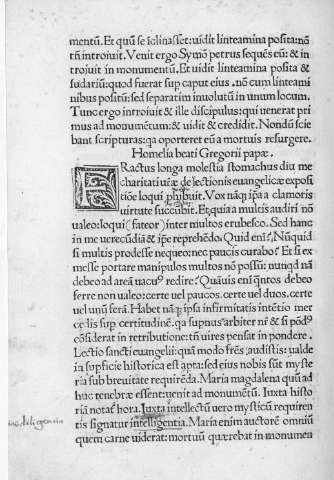 mentū. Et quū se īclinasset: uidit linteamina posita: nō
tn̄ introiuit. Venit ergo Symō petrus sequēs eū: & in
troiuit in monumentū. Et uidit linteamina posita &
sudariū: quod fuerat sup caput eius . nō cum linteami
nibus positū: sed separatim inuolutū in unum locum.
Tunc ergo introiuit & ille discipulus: qui uenerat pri
mus ad monumētum: & uidit & credidit. Nondū scie
bant scripturas: qa oporteret eū a mortuis resurgere.
Homelia beati Gregorii papæ.
FRactus longa molestia stomachus diu me
charitati uræ de lectionis euangelicæ exposi
tiōe loqui phibuit. Vox nāq; ipa a clamoris
uirtute succūbit. Et quia a multis audiri nō
ualeo: loqui (fateor) inter multos erubesco. Sed hanc
in me uerecūdiā & ipe reprehēdo. Quid eni? Nūquid
si multis prodesse nequeo: nec paucis curabo? Et si ex
messe portare manipulos multos nō possū: nunqd nā
debeo ad areā uacu⁹ redire? Quāuis eni qntos debeo
ferre non ualeo: certe uel paucos. certe uel duos. certe
uel unū ferā. Habet nāq; ipsa infirmitatis intētio mer
cedis sup certitudinē. qa supnus arbiter nr̄ & si pōd⁹
cōsiderat in retributione: tn̄ uires pensat in pondere.
Lectio sancti euangelii: quā modo frēs audistis: ualde
ia supficie historica est apta: sed eius nobis sūt myste
ria sub breuitate requirēda. Maria magdalena quū ad
huc tenebræ essent: uenit ad monumētū. Iuxta histo
ria notat hora. Iuxta intellectū uero mysticū requiren
tis signatur intelligentia. Maria enim auctorē omniū
quem carne uiderat: mortuū quærebat in monumen